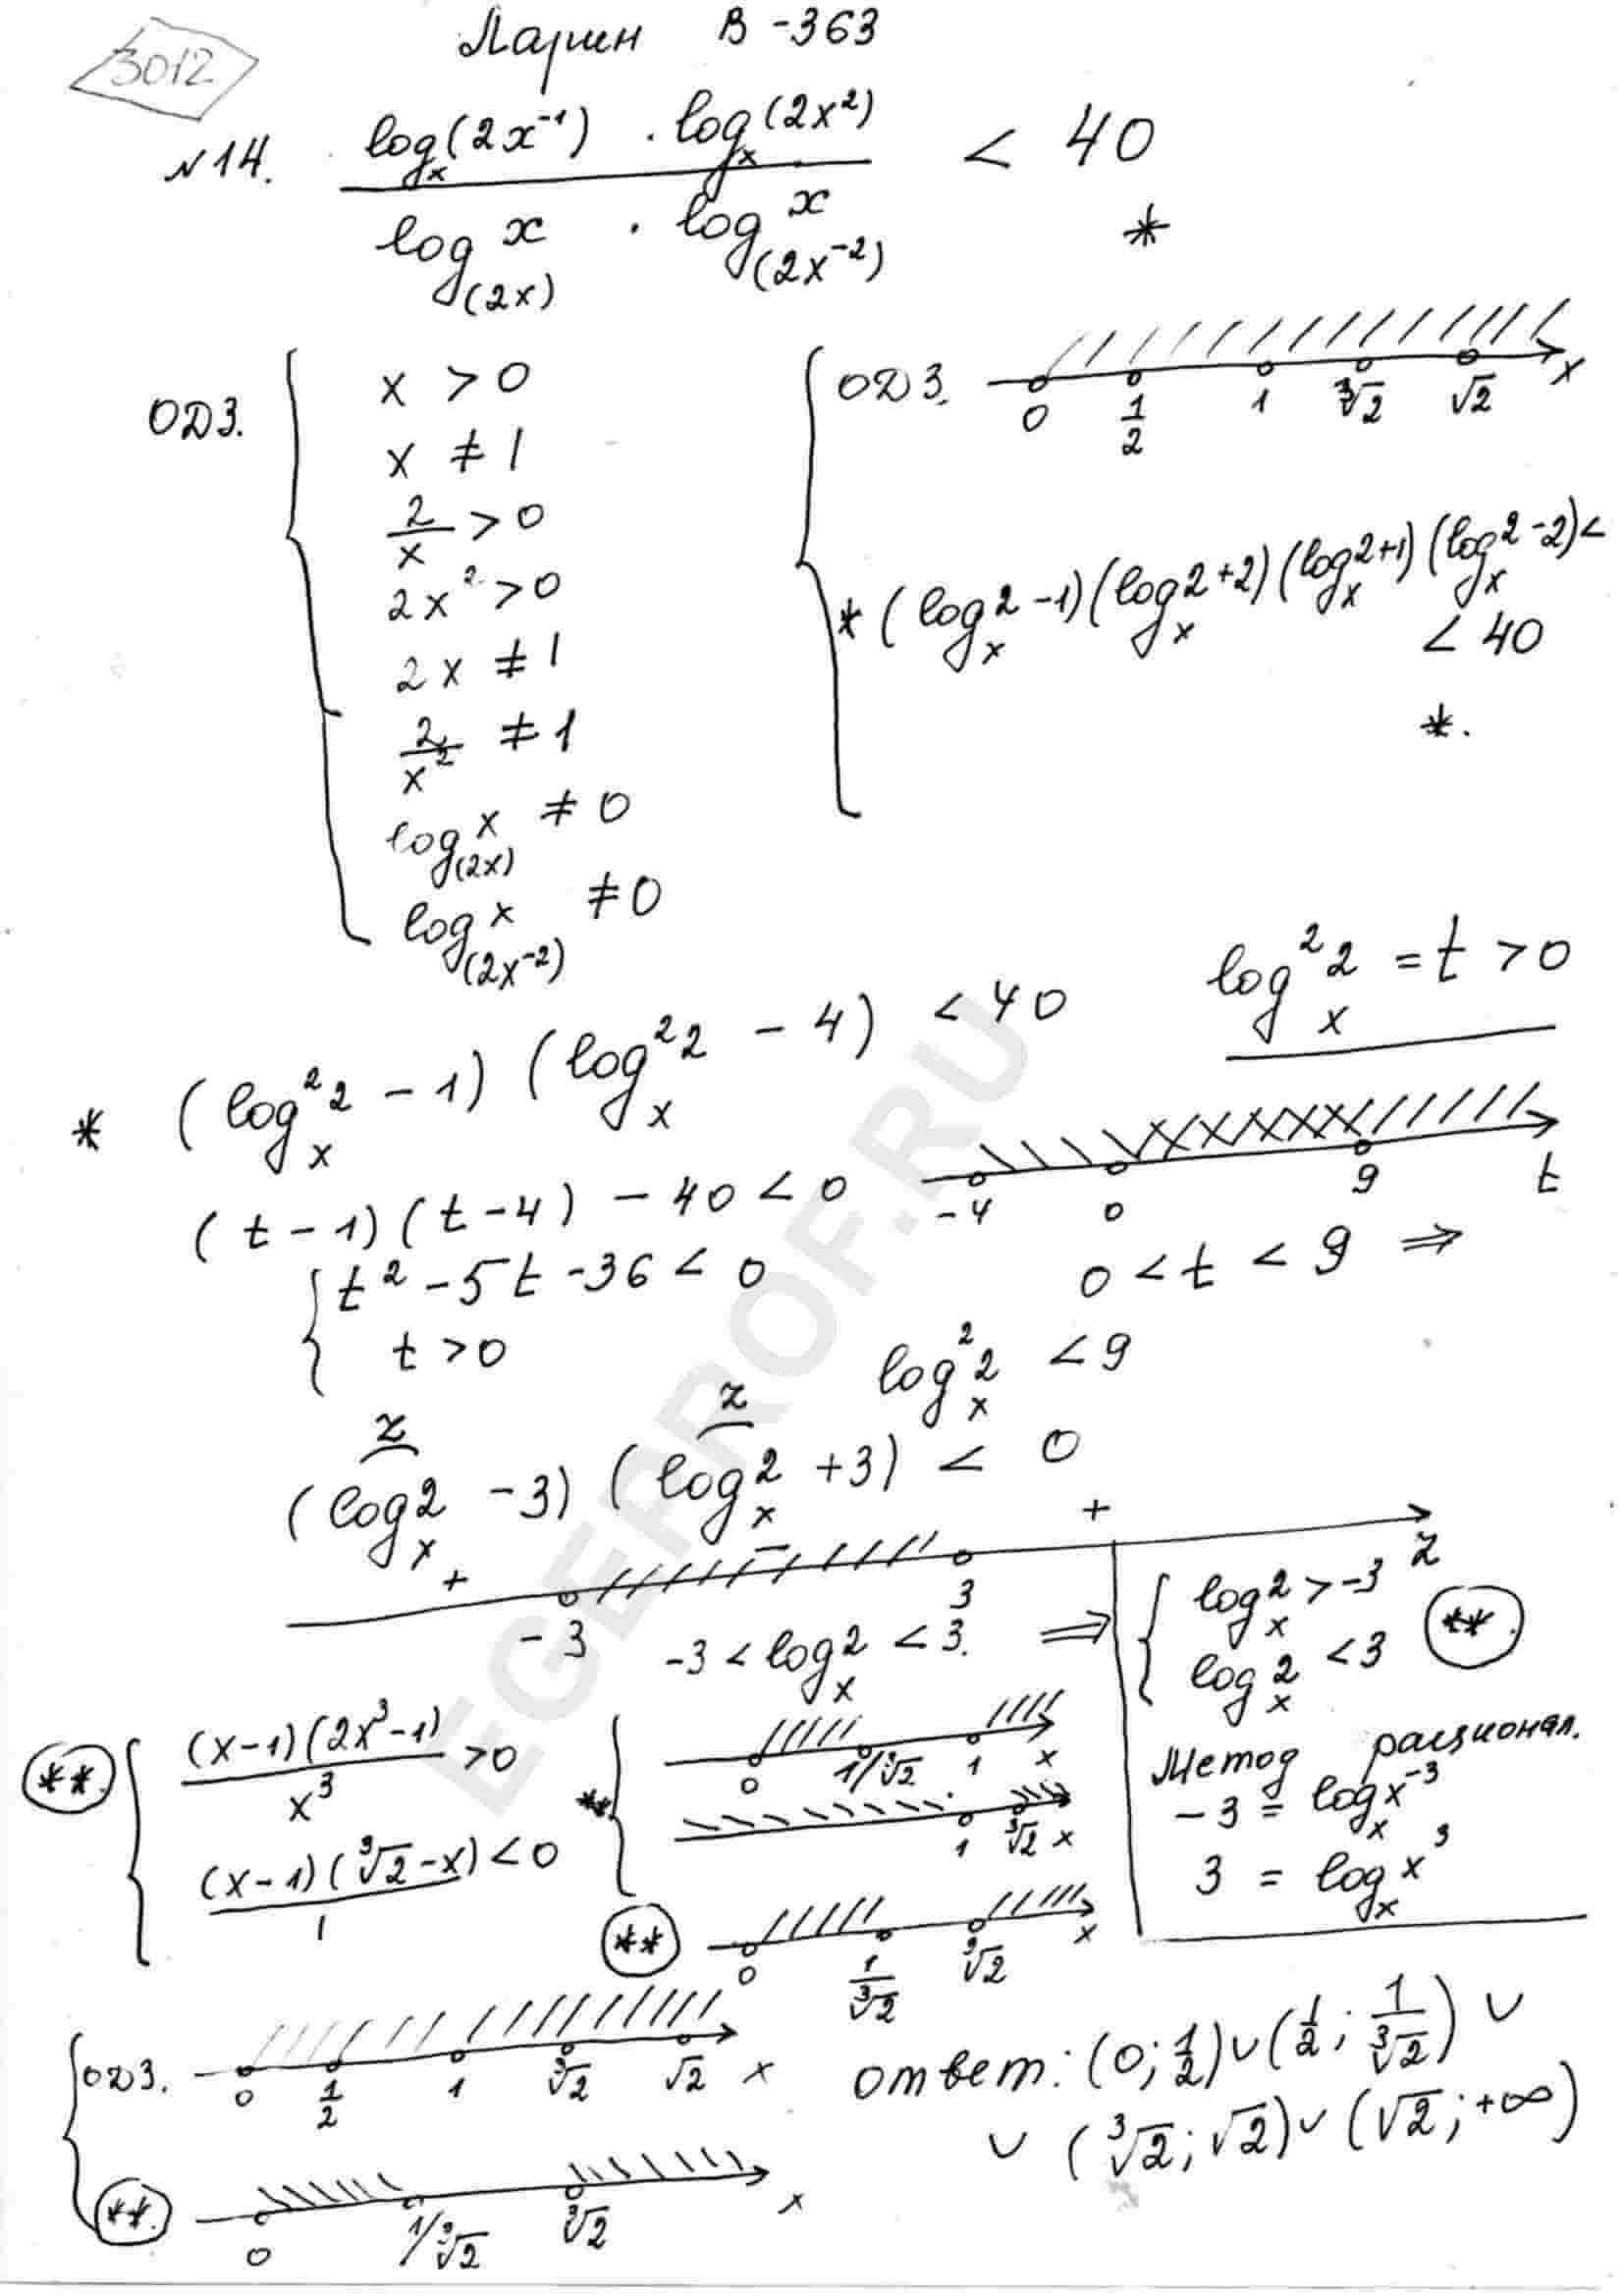 3012
Ларин В-363
N14. log_x(2x^-1) · log_x(2x^2) / log_(2x) x · log_(2x^-2) x < 40 *
ОДЗ.
x > 0
x ≠ 1
2/x > 0
2x^2 > 0
2x ≠ 1
2/x^2 ≠ 1
log_(2x) x ≠ 0
log_(2x^-2) x ≠ 0
ОДЗ. 0 1/2 1 ∛2 √2 x
* (log_x 2 - 1)(log_x 2 + 2)(log_x 2 + 1)(log_x 2 - 2) <
< 40
*.
log_x^2 2 = t > 0
* (log_x^2 2 - 1)(log_x^2 2 - 4) < 40
(t - 1)(t - 4) - 40 < 0
t^2 - 5t - 36 < 0
t > 0
-4 0 9 t
0 < t < 9 ⇒
log_x^2 2 < 9
z z
(log_x 2 - 3)(log_x 2 + 3) < 0
+ - + z
-3 3
-3 < log_x 2 < 3. ⇒
log_x 2 > -3
log_x 2 < 3 **.
Метод рационал.
-3 = log_x x^-3
3 = log_x x^3
**. (x-1)(2x^3-1)/x^3 > 0
(x-1)(∛2-x)/1 < 0
** 0 1/∛2 1 x
1 ∛2 x
** 0 1/∛2 ∛2 x
ОДЗ. 0 1/2 1 ∛2 √2 x
**. 0 1/∛2 ∛2 x
ответ: (0; 1/2) ∪ (1/2; 1/∛2) ∪
∪ (∛2; √2) ∪ (√2; +∞)
EGEPROF.RU